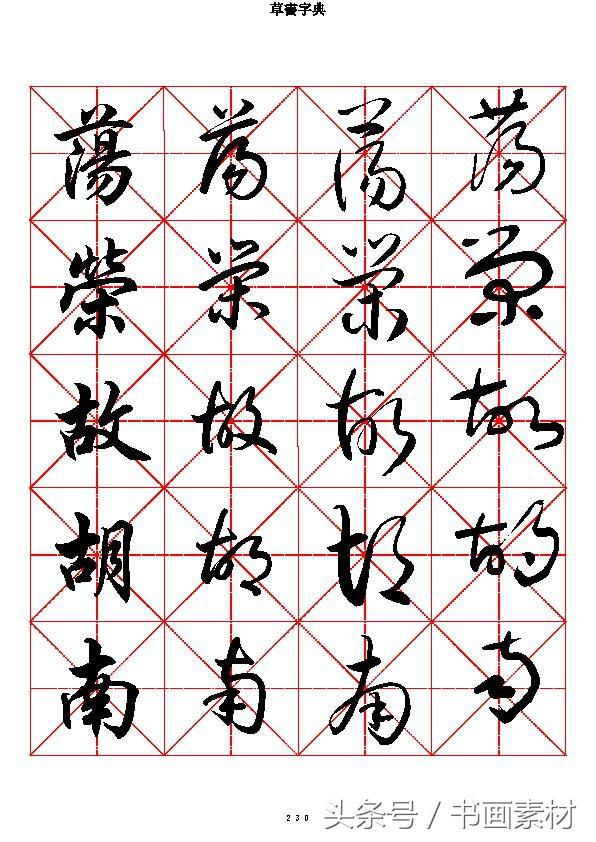 草書字典
蕩 蕩 蕩 蕩
榮 榮 榮 榮
故 故 故 故
胡 胡 胡 胡
南 南 南 南
230
头条号 / 书画素材